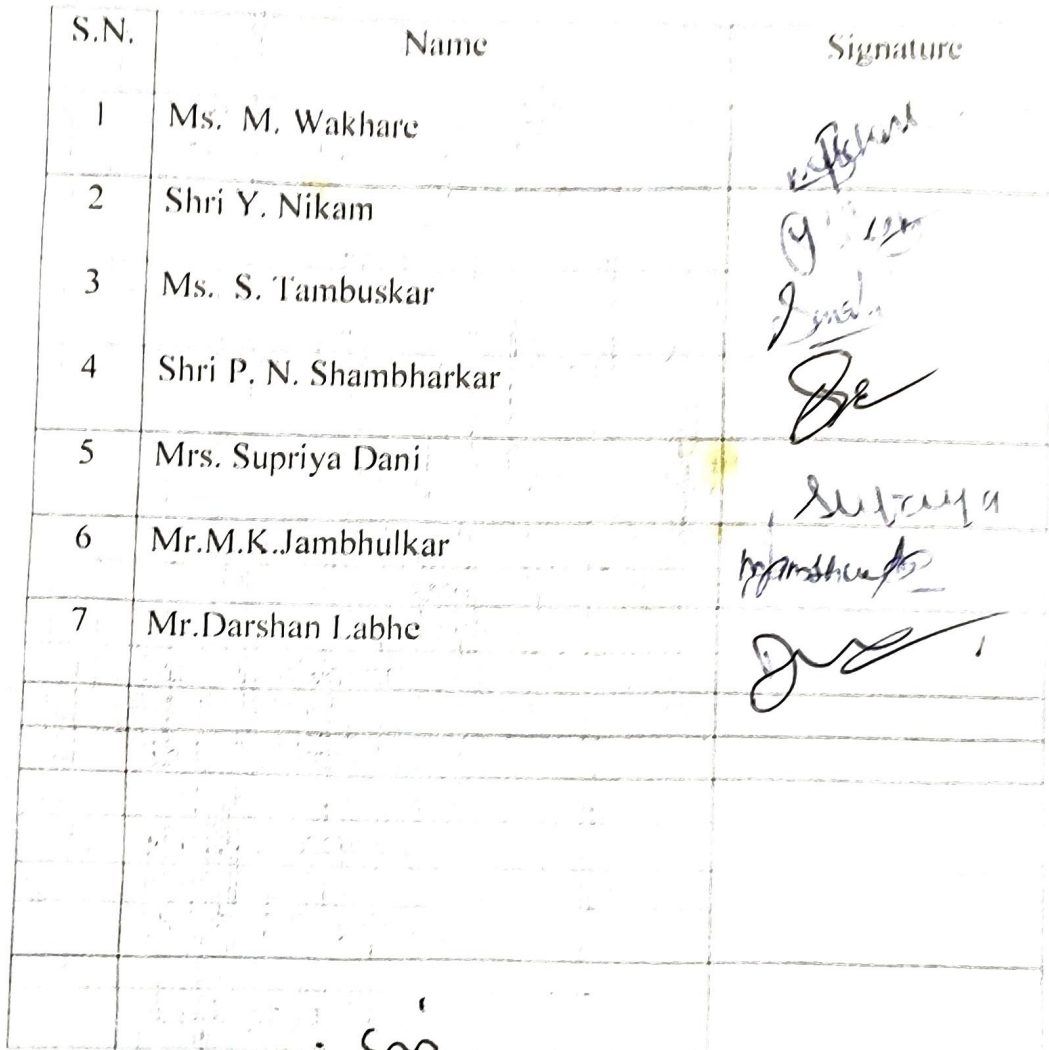 S.N. Name Signature
1 Ms. M. Wakhare
2 Shri Y. Nikam
3 Ms. S. Tambuskar
4 Shri P. N. Shambharkar
5 Mrs. Supriya Dani Supriya
6 Mr.M.K.Jambhulkar
7 Mr.Darshan Labhe